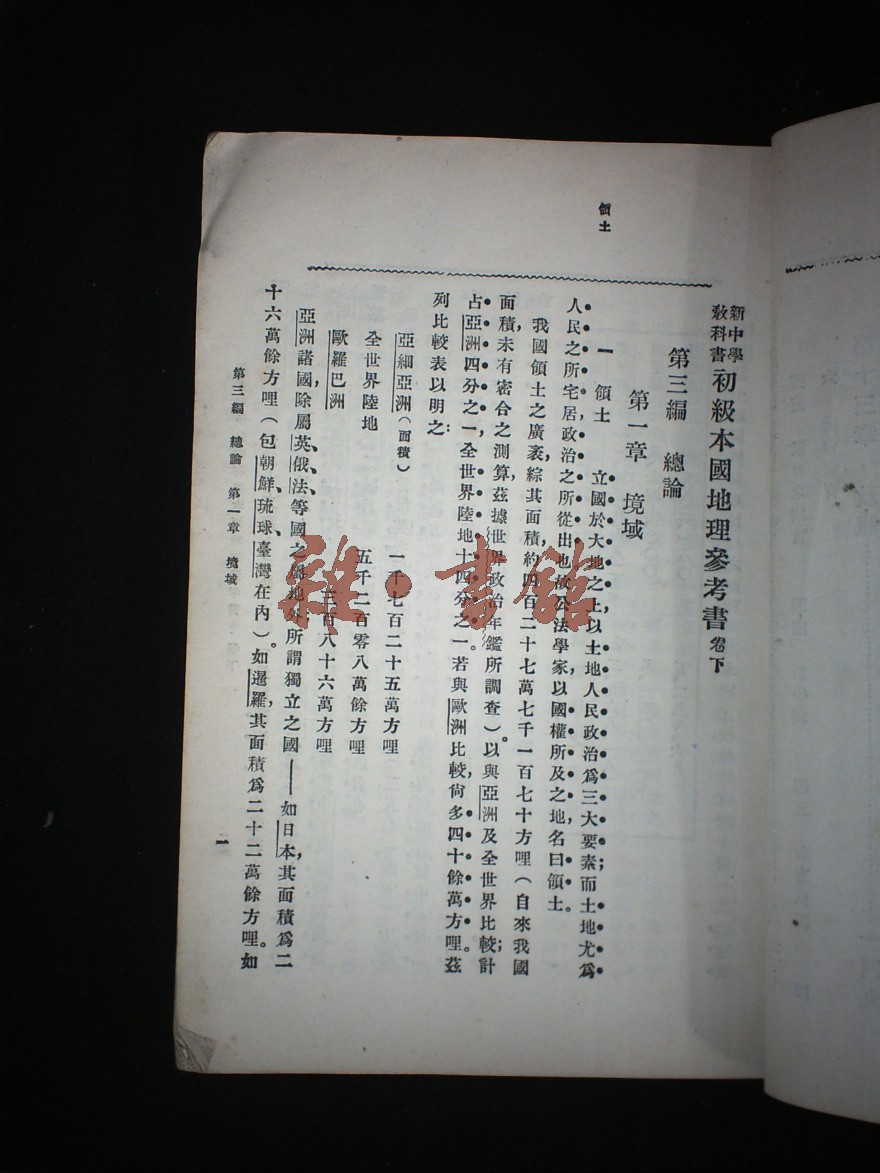 新中學
教科書
初級本國地理參考書 卷下
第三編 總論
第一章 境域
領土
一 領土 立國於大地之上以土地人民政治爲三大要素;而土地尤爲
人民之所宅居,政治之所從出也,故公法學家,以國權所及之地,名曰領土。
我國領土之廣袤,綜其面積,約四百二十七萬七千一百七十方哩(自來我國
面積,未有密合之測算,茲據世界政治年鑑所調查)。以與亞洲及全世界比較;計
占亞洲四分之一,全世界陸地十四分之一。若與歐洲比較,尙多四十餘萬方哩。茲
列比較表以明之:
亞細亞洲(面積) 一千七百二十五萬方哩
全世界陸地 五千二百零八萬餘方哩
歐羅巴洲 三百八十六萬方哩
亞洲諸國,除屬英、俄、法、等國之屬地外,所謂獨立之國——如日本,其面積爲二
十六萬餘方哩(包朝鮮、琉球、臺灣在內)。如暹羅,其面積爲二十二萬餘方哩。如
第三編 總論 第一章 境域
一
雜·書館